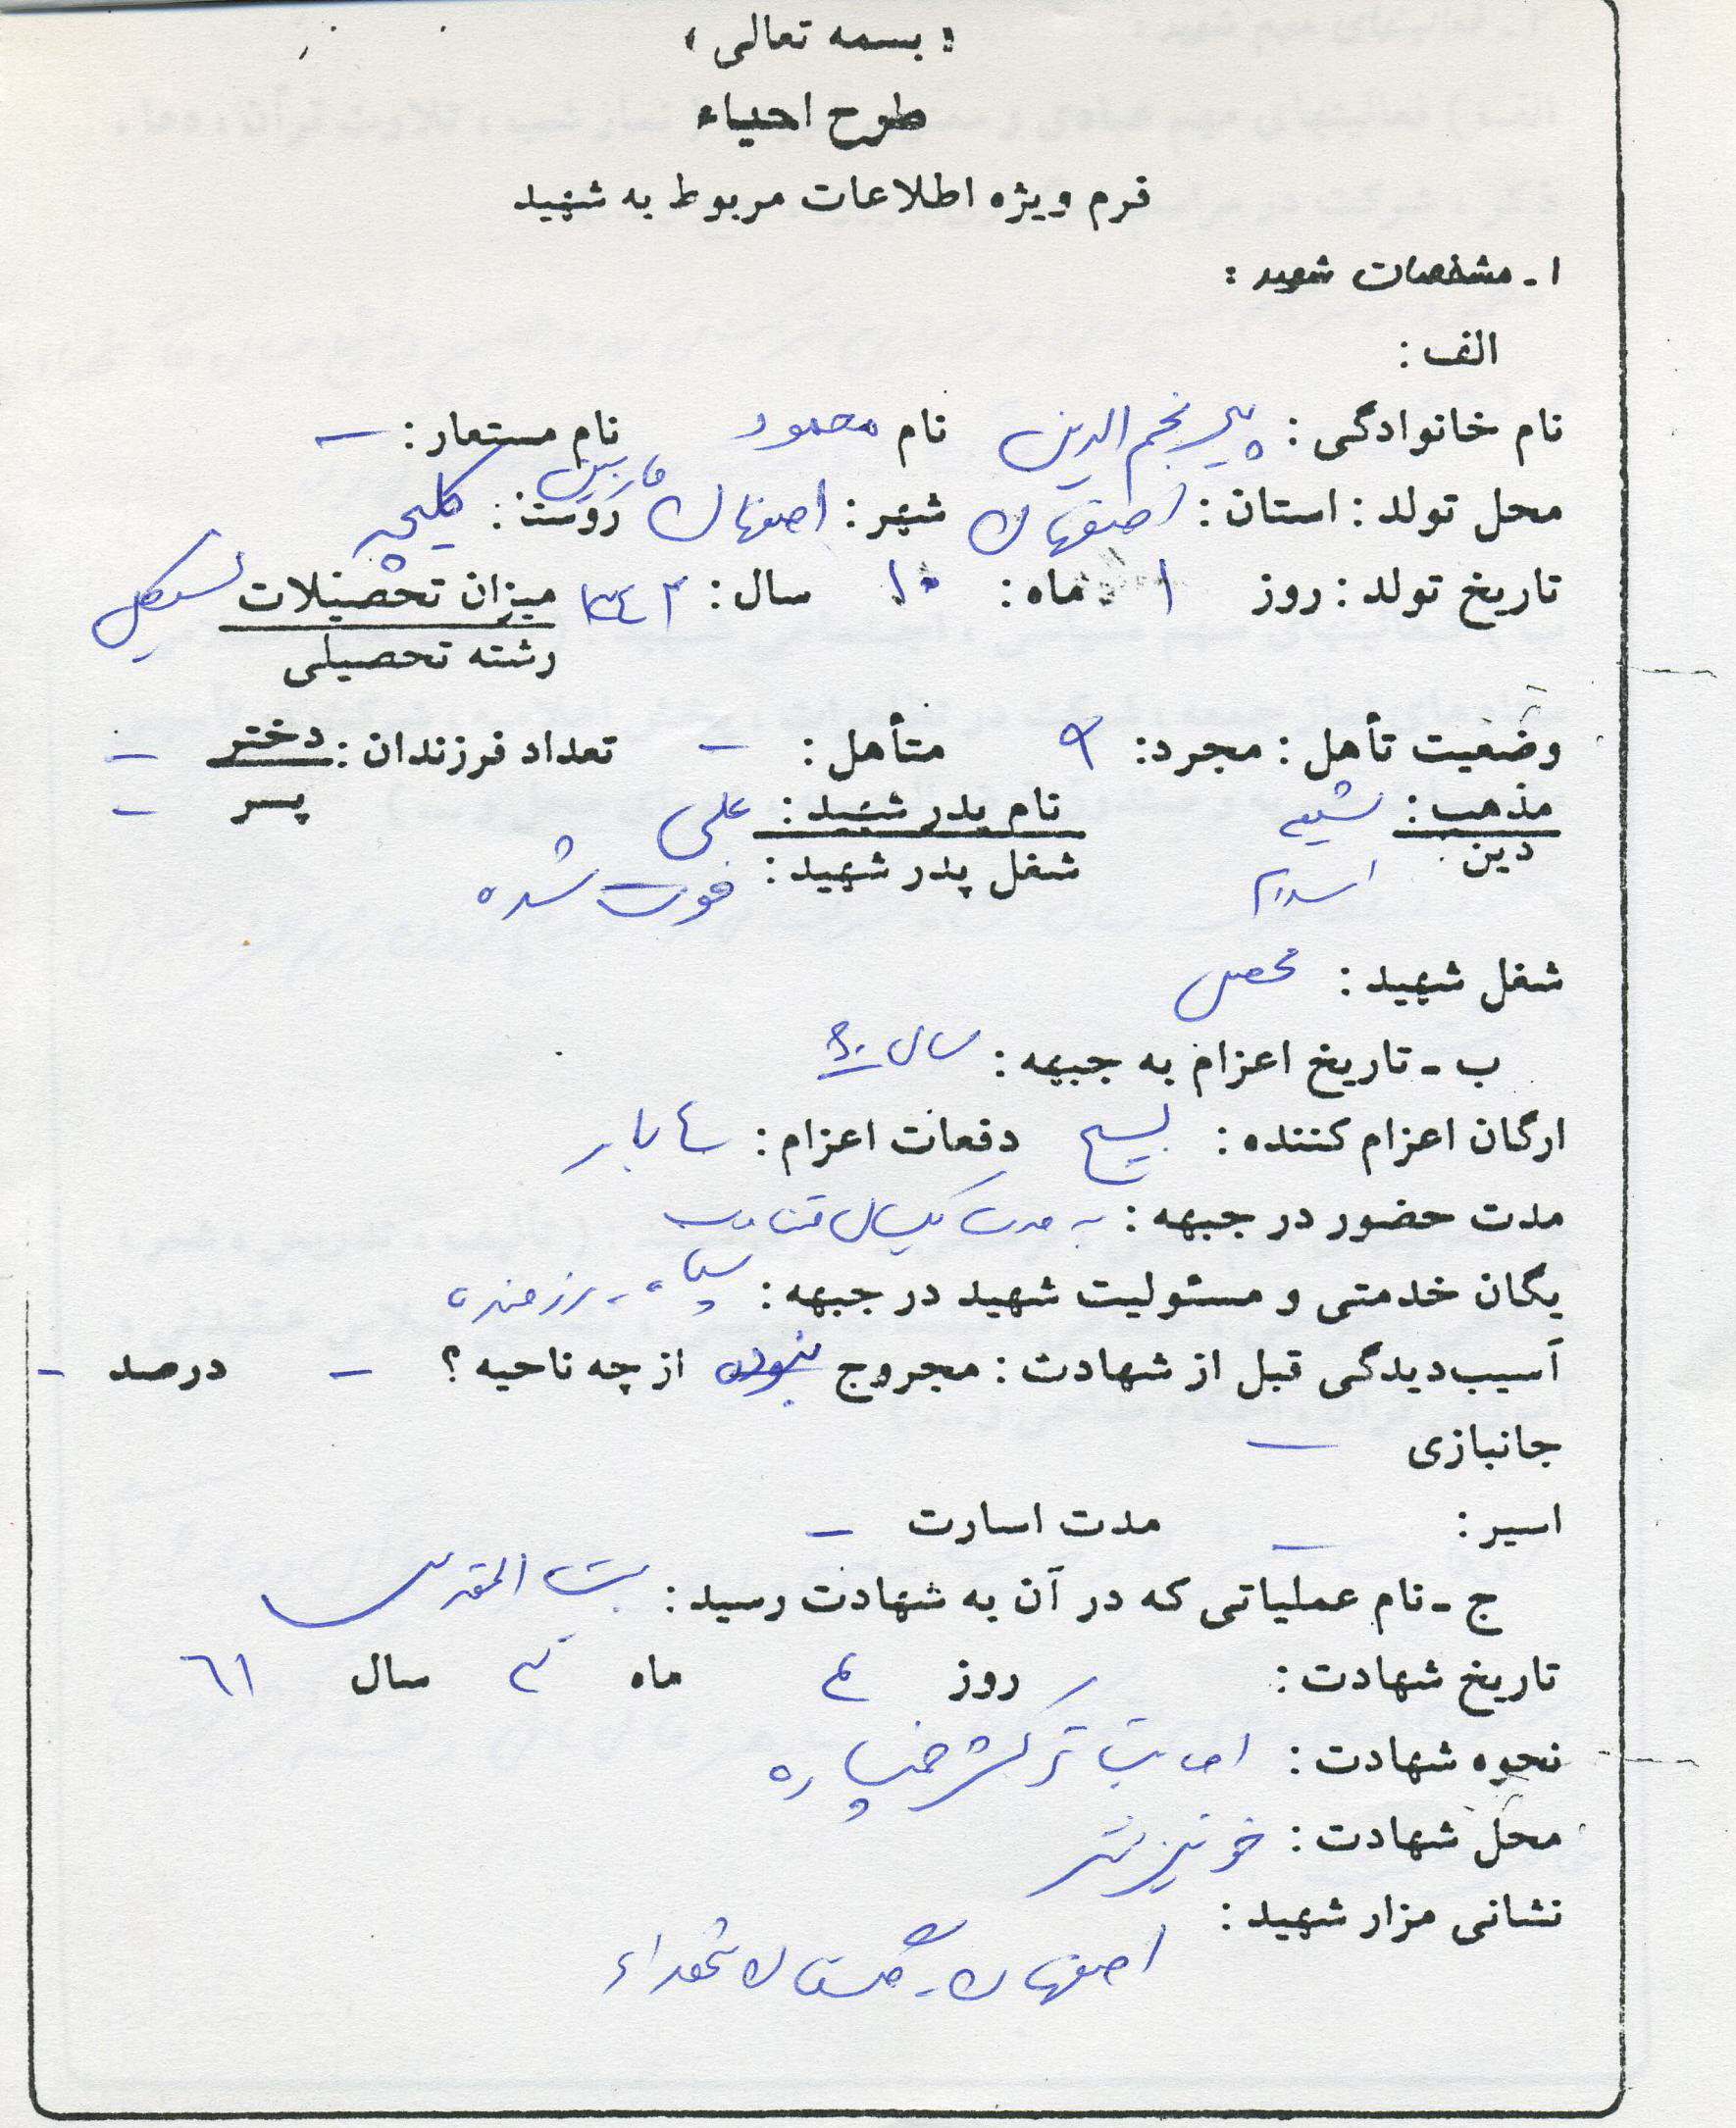 « بسمه تعالی »
طرح احیاء
فرم ویژه اطلاعات مربوط به شهید
۱ـ مشخصات شهید :
الف :
نام خانوادگی : پیرنجم الدین نام محمود نام مستعار : –
محل تولد : استان : اصفهان شهر : اصفهان ماربین روستا : کلیچه
تاریخ تولد : روز ۱ ماه : ۱۰ سال : ۱۳۴۲ میزان تحصیلات سیکل
رشته تحصیلی
وضعیت تأهل : مجرد : متأهل : – تعداد فرزندان : دختر –
مذهب : شیعه نام پدر شهید : علی پسر –
دین اسلام شغل پدر شهید : فوت شده
شغل شهید : محصل
ب ـ تاریخ اعزام به جبهه : سال ۶۰
ارگان اعزام کننده : بسیج دفعات اعزام : بار
مدت حضور در جبهه : به مدت یکسال
یگان خدمتی و مسئولیت شهید در جبهه : سپاه - رزمنده
آسیب‌دیدگی قبل از شهادت : مجروح نبودن از چه ناحیه ؟ – درصد –
جانبازی –
اسیر : – مدت اسارت –
ج ـ نام عملیاتی که در آن به شهادت رسید : بیت المقدس
تاریخ شهادت : روز ۴ ماه ۳ سال ٦۱
نحوه شهادت : اصابت ترکش خمپاره
محل شهادت : خونین شهر
نشانی مزار شهید :
اصفهان - گلستان شهداء